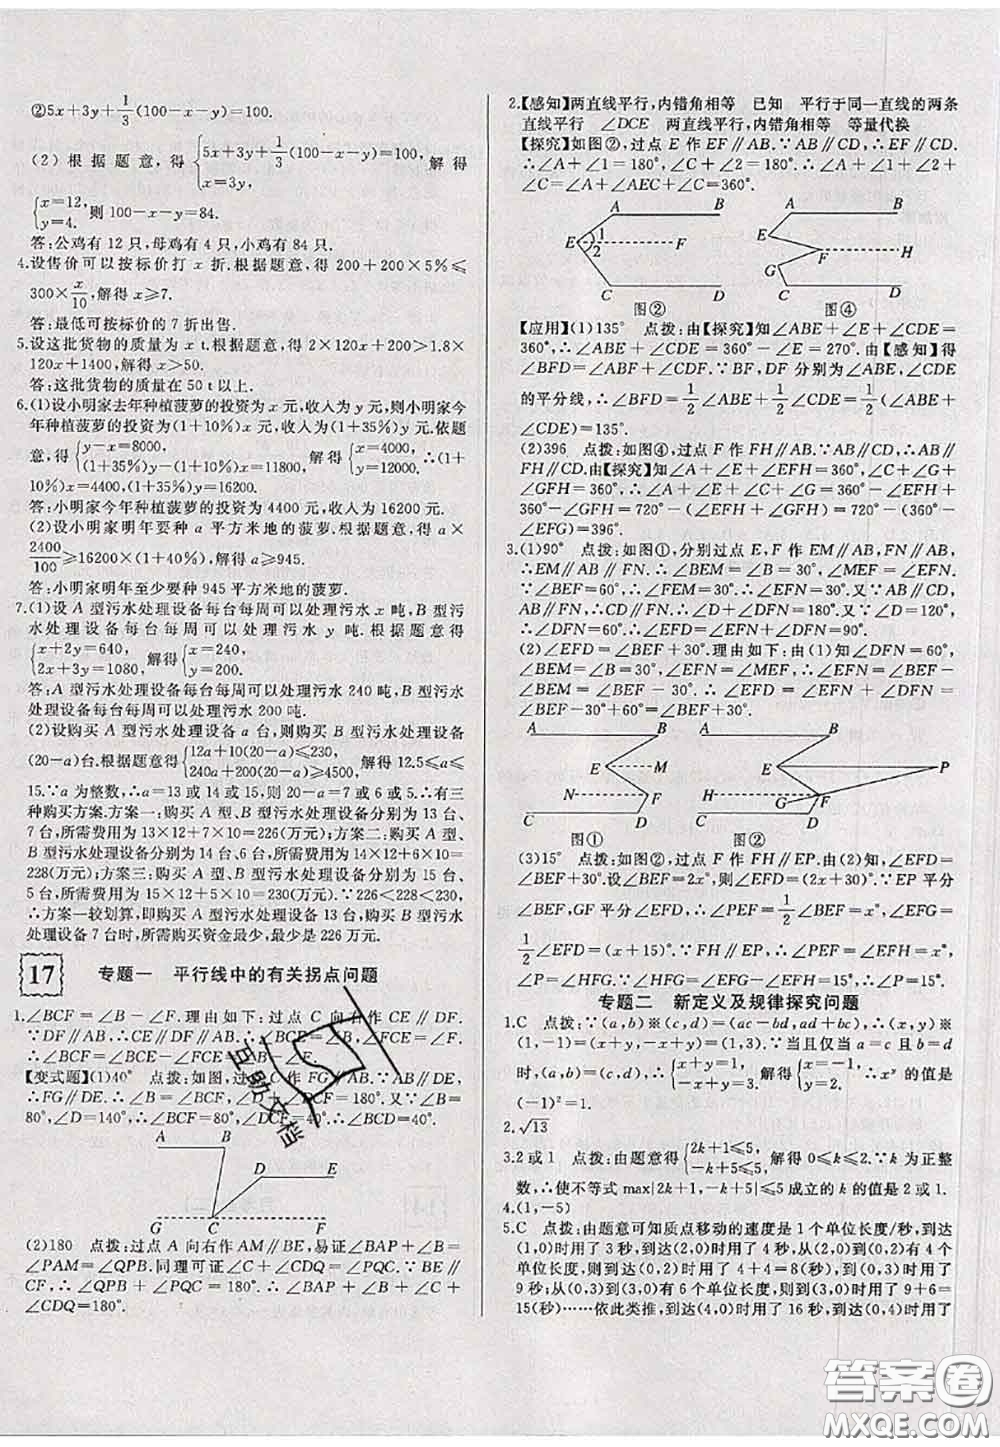 ②5x+3y+1/3(100-x-y)=100.
(2)根据题意,得{5x+3y+1/3(100-x-y)=100, x=3y, 解得
{x=12, y=4. 则100-x-y=84.
答:公鸡有12只,母鸡有4只,小鸡有84只.
4.设售价可以按标价打x折.根据题意,得200+200×5%≤
300×x/10,解得x≥7.
答:最低可按标价的7折出售.
5.设这批货物的质量为x t.根据题意,得2×120x+200>1.8×
120x+1400,解得x>50.
答:这批货物的质量在50 t以上.
6.(1)设小明家去年种植菠萝的投资为x元,收入为y元,则小明家今
年种植菠萝的投资为(1+10%)x元,收入为(1+35%)y元.依题
意,得{y-x=8000, (1+35%)y-(1+10%)x=11800, 解得{x=4000, y=12000. ∴(1+
10%)x=4400,(1+35%)y=16200.
答:小明家今年种植菠萝的投资为4400元,收入为16200元.
(2)设小明家明年要种a平方米地的菠萝.根据题意,得a×
2400/100≥16200×(1+40%),解得a≥945.
答:小明家明年至少要种945平方米地的菠萝.
7.(1)设A型污水处理设备每台每周可以处理污水x吨,B型污
水处理设备每台每周可以处理污水y吨.根据题意得
{x+2y=640, 2x+3y=1080, 解得{x=240, y=200.
答:A型污水处理设备每台每周可以处理污水240吨,B型污水
处理设备每台每周可以处理污水200吨.
(2)设购买A型污水处理设备a台,则购买B型污水处理设备
(20-a)台.根据题意得{12a+10(20-a)≤230, 240a+200(20-a)≥4500, 解得12.5≤a≤
15.∵a为整数,∴a=13或14或15,则20-a=7或6或5.∴有三
种购买方案.方案一:购买A型、B型污水处理设备分别为13台、
7台,所需费用为13×12+7×10=226(万元);方案二:购买A型、
B型污水处理设备分别为14台、6台,所需费用为14×12+6×10=
228(万元);方案三:购买A型、B型污水处理设备分别为15台、
5台,所需费用为15×12+5×10=230(万元).∵226<228<230,
∴方案一较划算,即购买A型污水处理设备13台,购买B型污水
处理设备7台时,所需购买资金最少,最少是226万元.
17 专题一 平行线中的有关拐点问题
1.∠BCF=∠B-∠F.理由如下:过点C向右作CE∥DF.
∵DF∥AB,∴CE∥DF∥AB.∴∠BCE=∠B,∠FCE=∠F.
∴∠BCF=∠BCE-∠FCE=∠B-∠F.
【变式题】(1)40° 点拨:如图,过点C作FG∥AB.∵AB∥DE,
∴FG∥DE.∴∠B=∠BCF,∠CDE+∠DCF=180°.又∵∠B=
80°,∠D=140°,∴∠BCF=80°,∠DCF=40°.∴∠BCD=40°.
A B
D E
G C F
(2)180 点拨:过点A向右作AM∥BE,易证∠BAP+∠B=
∠PAM=∠QPB.同理可证∠C+∠CDQ=∠PQC.∵BE∥
CF,∴∠QPB+∠PQC=180°.∴∠BAP+∠B+∠C+
∠CDQ=180°.
2.【感知】两直线平行,内错角相等 已知 平行于同一直线的两条
直线平行 ∠DCE 两直线平行,内错角相等 等量代换
【探究】如图②,过点E作EF∥AB.∵AB∥CD,∴EF∥CD.
∴∠A+∠1=180°,∠C+∠2=180°.∴∠A+∠1+∠2+
∠C=∠A+∠AEC+∠C=360°.
A B
E 1 2 F
C D
图②
A B
E
F H
G
C D
图④
【应用】(1)135° 点拨:由【探究】知∠ABE+∠E+∠CDE=
360°,∴∠ABE+∠CDE=360°-∠E=270°.由【感知】得
∠BFD=∠ABF+∠CDF.∵BF,DF分别为∠ABE,∠CDE
的平分线,∴∠BFD=1/2∠ABE+1/2∠CDE=1/2(∠ABE+
∠CDE)=135°.
(2)396 点拨:如图④,过点F作FH∥AB.∵AB∥CD,∴AB∥
FH∥CD.由【探究】知∠A+∠E+∠EFH=360°,∠C+∠G+
∠GFH=360°,∴∠A+∠E+∠C+∠G+∠EFH+
∠GFH=720°,∴∠A+∠E+∠C+∠G=720°-(∠EFH+
∠GFH)=720°-(∠EFH+∠GFH)=720°-(360°-
∠EFG)=396°.
3.(1)90° 点拨:如图①,分别过点E,F作EM∥AB,FN∥AB,
∴EM∥AB∥FN.∴∠B=∠BEM=30°,∠MEF=∠EFN.
又∵AB∥CD,∴CD∥FN.∴∠D+∠DFN=180°.又∵∠D=120°,
∴∠DFN=60°.∴∠EFD=∠EFN+∠DFN=90°.
(2)∠EFD=∠BEF+30°.理由如下:由(1)知∠DFN=60°,
∠BEM=∠B=30°,∠EFN=∠MEF,∴∠EFN=∠BEF-
∠BEM=∠BEF-30°.∴∠EFD=∠EFN+∠DFN=
∠BEF-30°+60°=∠BEF+30°.
A B
E M
N F
C D
图①
A B
E P
H G F
C D
图②
(3)15° 点拨:如图②,过点F作FH∥EP.由(2)知,∠EFD=
∠BEF+30°.设∠BEF=2x°,则∠EFD=(2x+30)°.∵EP平分
∠BEF,GF平分∠EFD,∴∠PEF=1/2∠BEF=x°,∠EFG=
1/2∠EFD=(x+15)°.∵FH∥EP,∴∠PEF=∠EFH=x°,
∠P=∠HFG.∵∠HFG=∠EFG-∠EFH=15°,∴∠P=15°.
专题二 新定义及规律探究问题
1.C 点拨:∵(a,b)※(c,d)=(ac-bd,ad+bc),∴(x,y)※
(1,-1)=(x+y,-x+y)=(1,3).∵当且仅当a=c且b=d
时,(a,b)=(c,d),∴{x+y=1, -x+y=3. 解得{x=-1, y=2. ∴xʸ的值是
(-1)²=1.
2.√13
3.2或1 点拨:由题意得{2k+1≤5, -k+5≤5, 解得0≤k≤2.∵k为正整
数,∴使不等式max|2k+1,-k+5|≤5成立的k的值是2或1.
4.(1,-5)
5.C 点拨:由题意可知质点移动的速度是1个单位长度/秒,到达
(1,0)时用了3秒,到达(2,0)时用了4秒,从(2,0)到(0,2)有四
个单位长度,则到达(0,2)时用了4+4=8(秒),到(0,3)时用了
9秒;从(0,3)到(3,0)有6个单位长度,则到(3,0)时用了9+6=
15(秒)……依此类推,到达(4,0)时用了16秒,到达(0,4)时用了
互助文档
答案圈
MXQE.COM